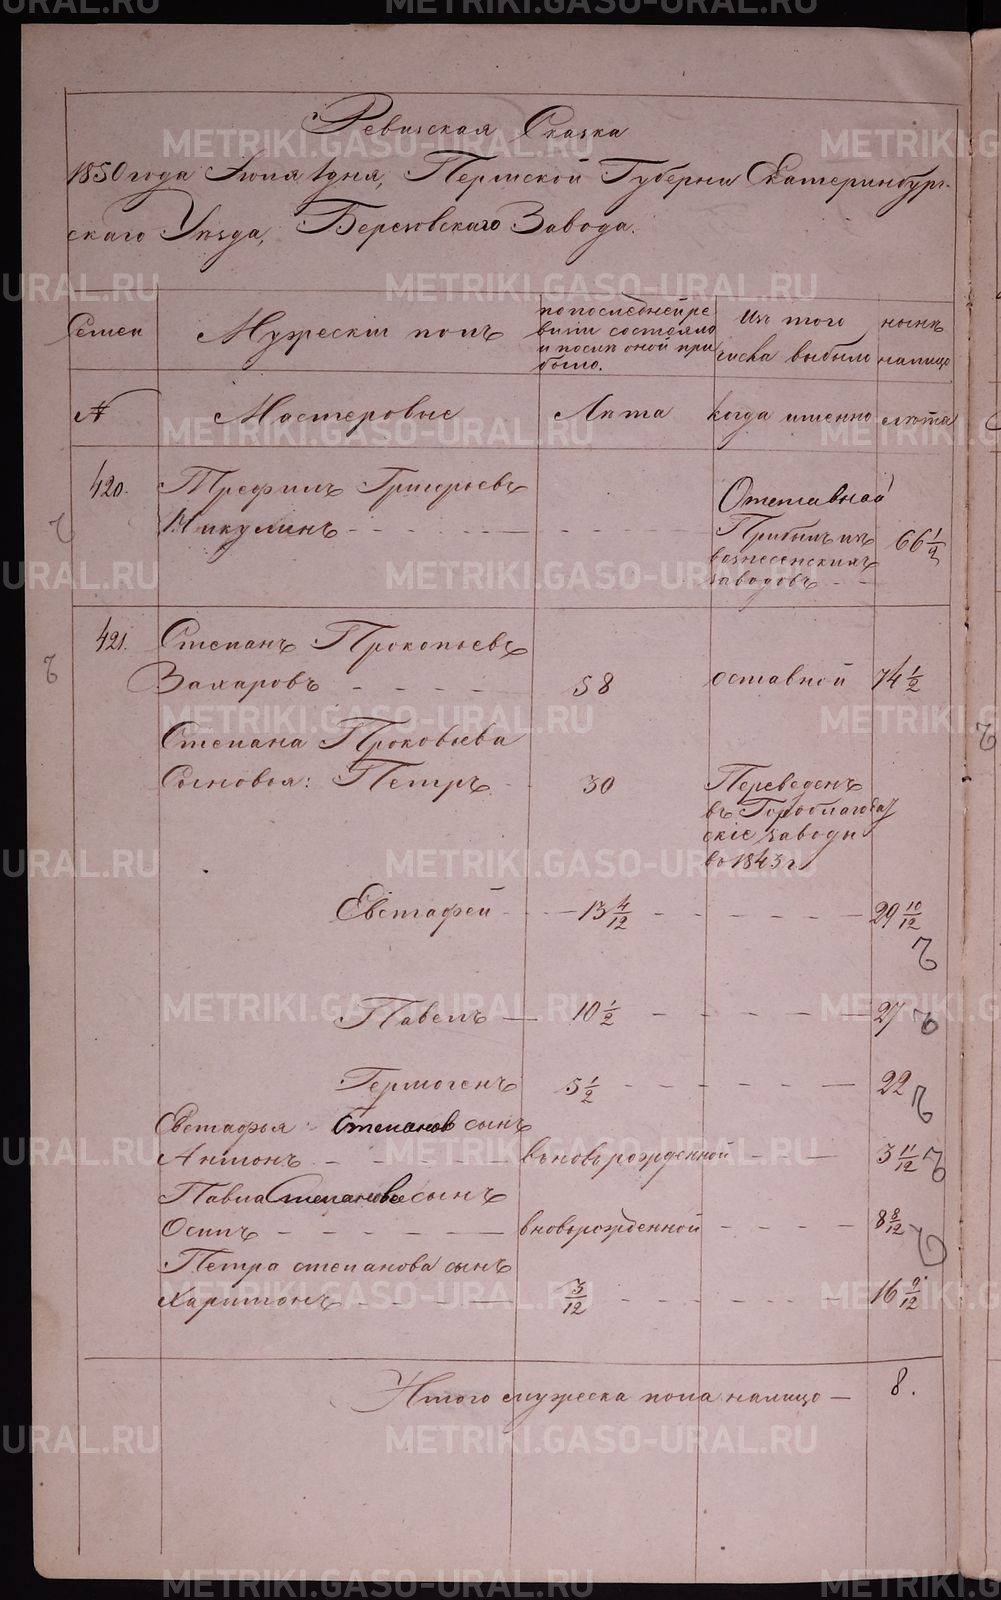 Ревизская Сказка
1850 года Июля 1 дня, Пермской Губернии Екатеринбург-
скаго Уѣзда, Березовскаго Завода.
Семеи
Мужескій полъ
по последней ре
визіи состояло
и послѣ оной при
было.
Изъ того
числа выбыло
нынѣ
налицо
№
Мастеровые
Лѣта
когда именно
лѣта
420.
Трефилъ Григорьевъ
Никулинъ
Отставной
Прибылъ изъ
вознесенскихъ
заводовъ
66 1/2
421.
Степанъ Прокопьевъ
Захаровъ
58
оставной
74 1/2
Степана Прокопьева
Сыновья: Петръ
30
Переведенъ
въ Гороблагода
скіе заводы
во 1843 г
Евстафей
13 4/12
29 10/12
Павелъ
10 1/2
27
Гермогенъ
5 1/2
22
Евстафья Степанов сынъ
Антонъ
вновьрожденной
3 11/12
Павла Степанова сынъ
Осипъ
вновьрожденной
8 8/12
Петра степанова сынъ
Харитонъ
3/12
16 9/12
Итого мужеска пола налицо — 8.
METRIKI.GASO-URAL.RU